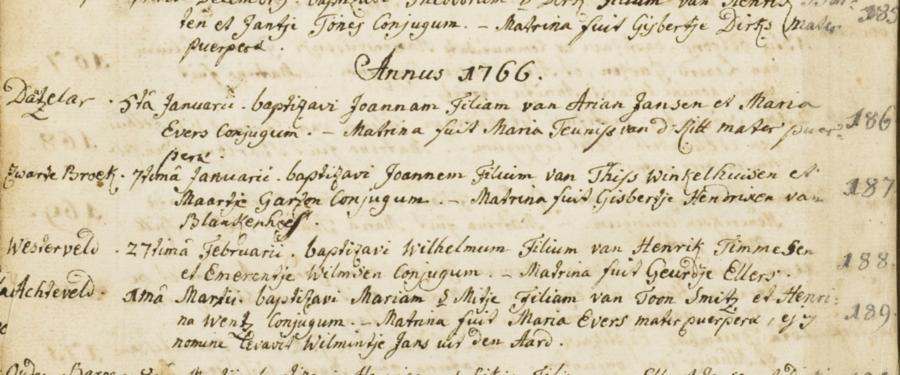 ten et Jantje Jones Conjugum. – Matrina fuit Gisbertje Dirks mater
puerperæ.
Annus 1766.
Datzelar. 5tâ Januarii. baptizavi Joannam Filiam van Arian Jansen et Maria 186
Evers Conjugum. – Matrina fuit Maria Teuniss van d' mater puer=
peræ.
Zwarte Broek. 7timâ Januarii. baptizavi Joannem Filium van Thijs Winkelhuisen et 187
Maartje Garsen Conjugum. – Matrina fuit Gisbertje Hendrixen van
Blankenhoef.
Westerveld. 27timâ Februarii. baptizavi Wilhelmum Filium van Henrik Timmesen 188
et Emerentje Wilmsen Conjugum. – Matrina fuit Geurdje Ellers.
Achteveld. 1mâ Martii. baptizavi Mariam & Mitje Filiam van Toon Smitz et Henri= 189
na Wentz Conjugum. – Matrina fuit Maria Evers mater puerperæ, ejus
nomine levavit Wilmintje Jans uit den Aard.